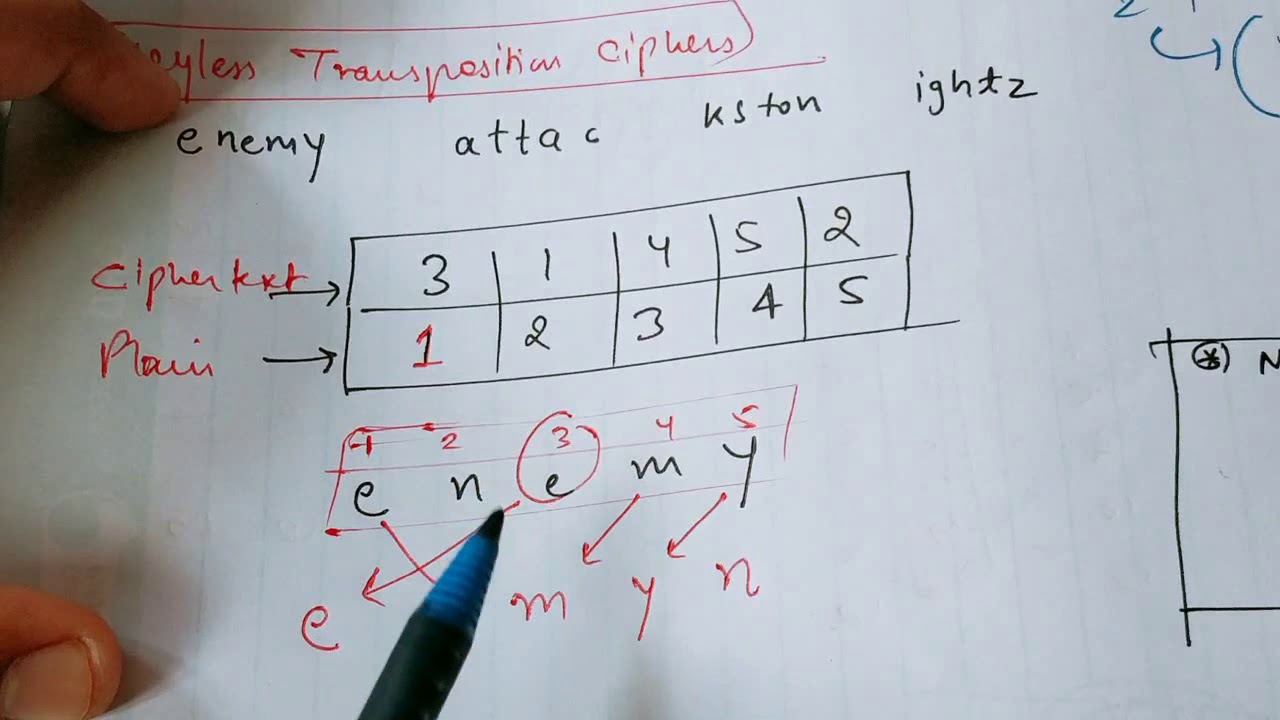 eyless Transposition Ciphers
enemy attac kston ightz
Ciphertext → 3 1 4 5 2
Plain → 1 2 3 4 5
1 2 3 4 5
e n e m y
e m y n
2
(*) N